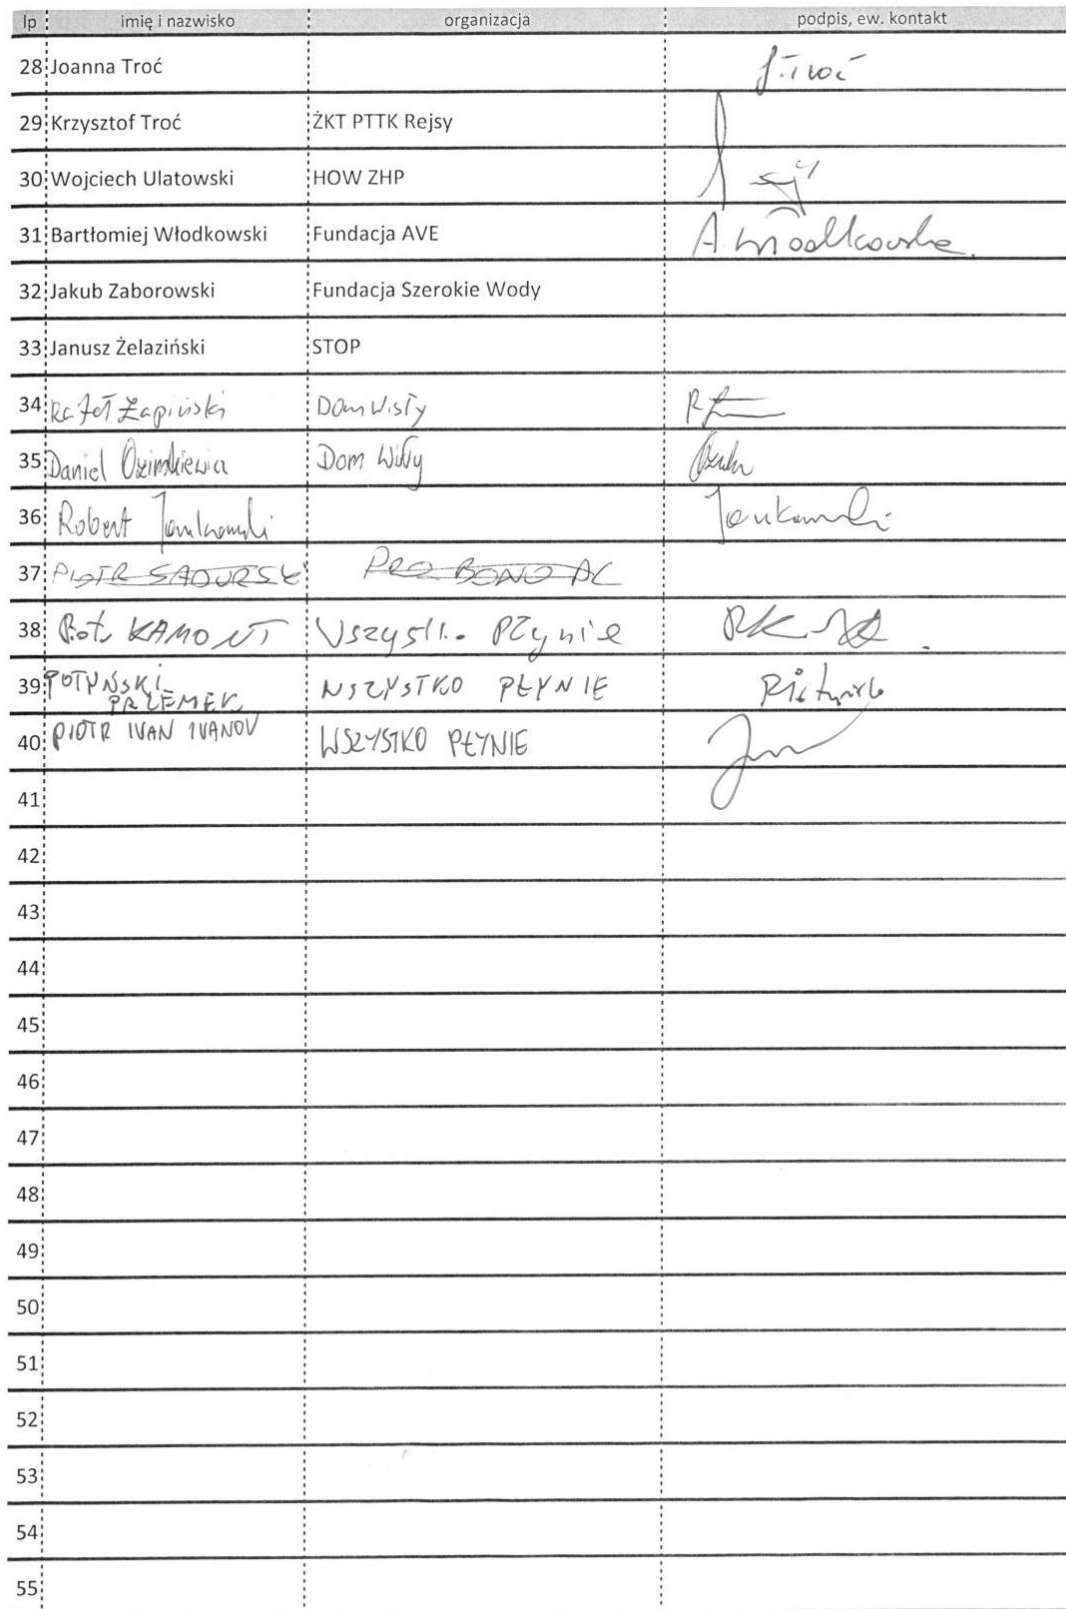 lp imię i nazwisko organizacja podpis, ew. kontakt
28 Joanna Troć J. Troć
29 Krzysztof Troć ŻKT PTTK Rejsy
30 Wojciech Ulatowski HOW ZHP
31 Bartłomiej Włodkowski Fundacja AVE A. Włodkowska
32 Jakub Zaborowski Fundacja Szerokie Wody
33 Janusz Żelaziński STOP
34 Rafał Łapiński Dom Wisły
35 Daniel Ozimkiewicz Dom Wisły
36 Robert Jankowski Jankowski
37 PIOTR SADURSKI PRO BONO AC
38 Piotr KAMONT Wszystko Płynie
39 POTYŃSKI WSZYSTKO PŁYNIE
PRZEMEK
40 PIOTR IVAN IVANOV WSZYSTKO PŁYNIE
41
42
43
44
45
46
47
48
49
50
51
52
53
54
55